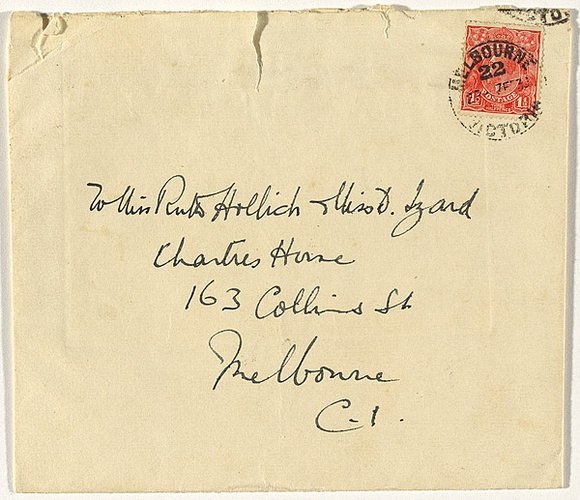 VICTO
MELBOURNE
22
VICTORIA
POSTAGE
To Miss Ruth Hollick & Miss D. Izard
Chartres House
163 Collins St
Melbourne
C.1.